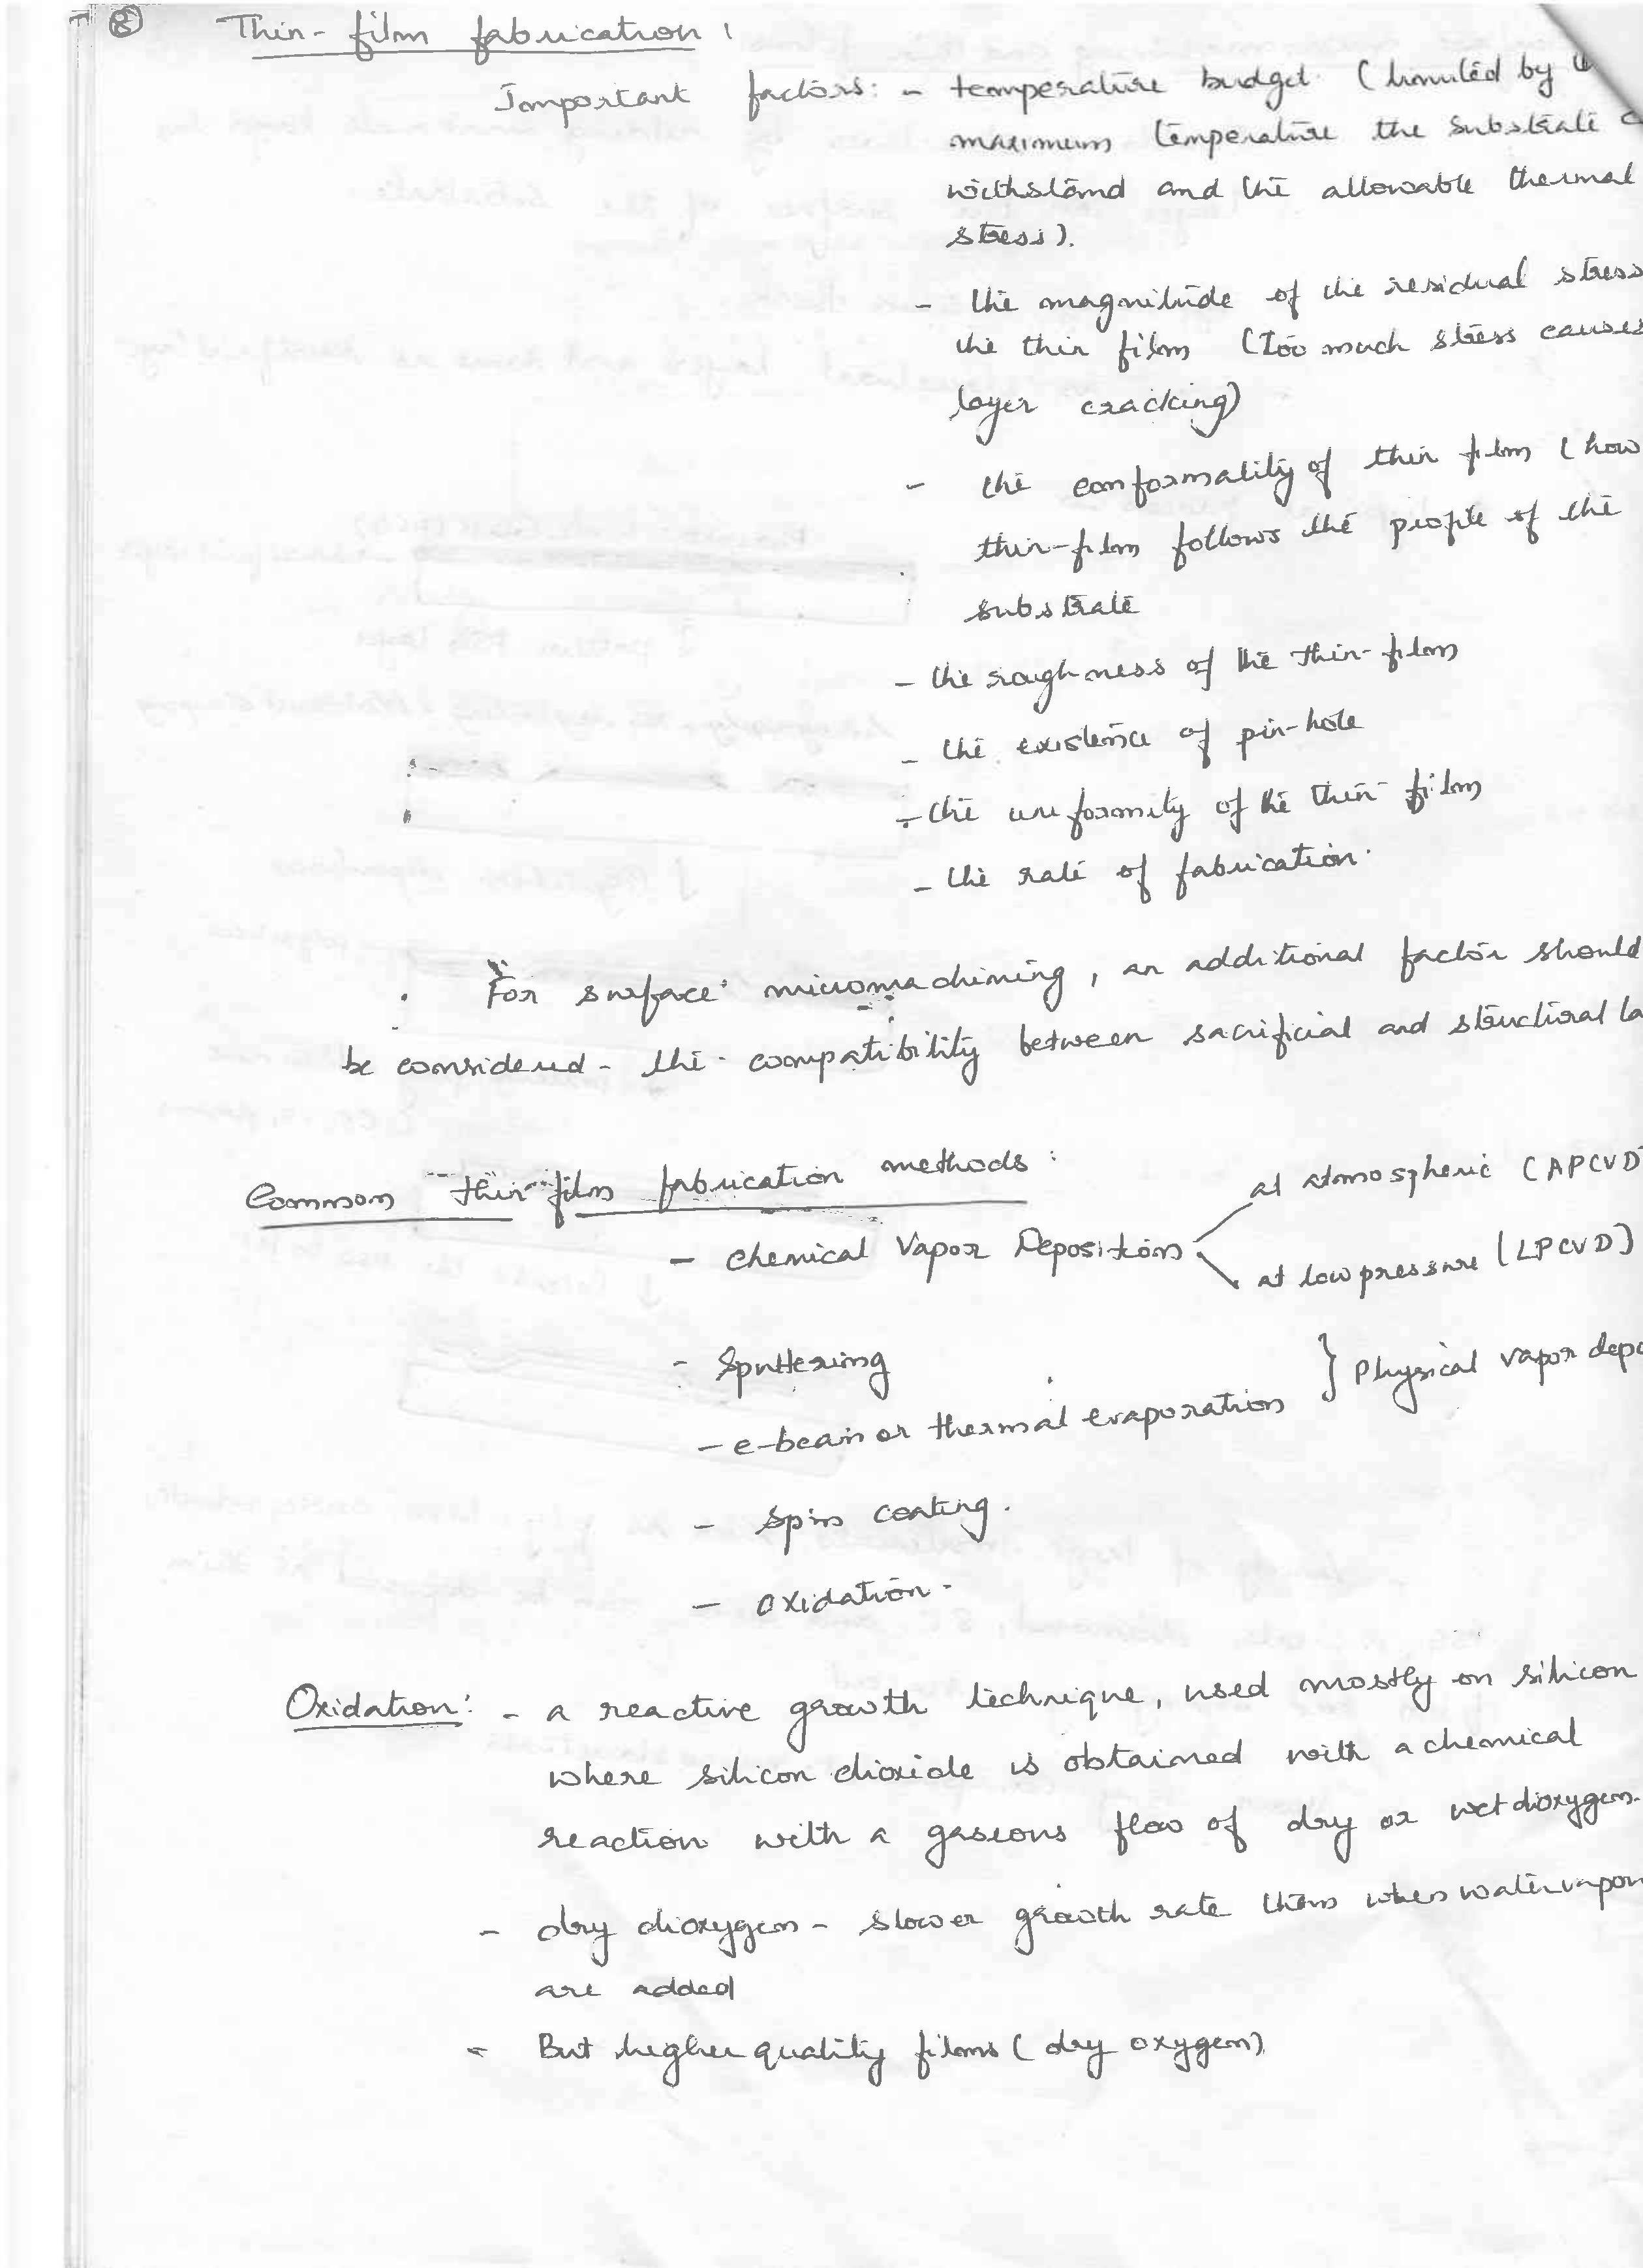 ⑧ Thin-film fabrication:
Important factors: - temperature budget (limited by
maximum temperature the substrate
withstand and the allowable thermal
stress).
- the magnitude of the residual stress
the thin film (Too much stress causes
layer cracking)
- the conformality of thin film (how
thin-film follows the profile of the
substrate
- the roughness of the thin-film
- the existence of pin-hole
- the uniformity of the thin film
- the rate of fabrication.
For surface micromachining, an additional factor should
be considered - the compatibility between sacrificial and structural la
Common thin film fabrication methods:
at atmospheric (APCVD
- Chemical Vapor Deposition
at low pressure (LPCVD)
- Sputtering
} Physical vapor depo
- e-beam or thermal evaporation
- Spin coating.
- Oxidation.
Oxidation: - a reactive growth technique, used mostly on silicon
where silicon dioxide is obtained with a chemical
reaction with a gaseous flow of dry or wet dioxygen.
- dry dioxygen - slower growth rate than when water vapor
are added
- But higher quality films (dry oxygen)